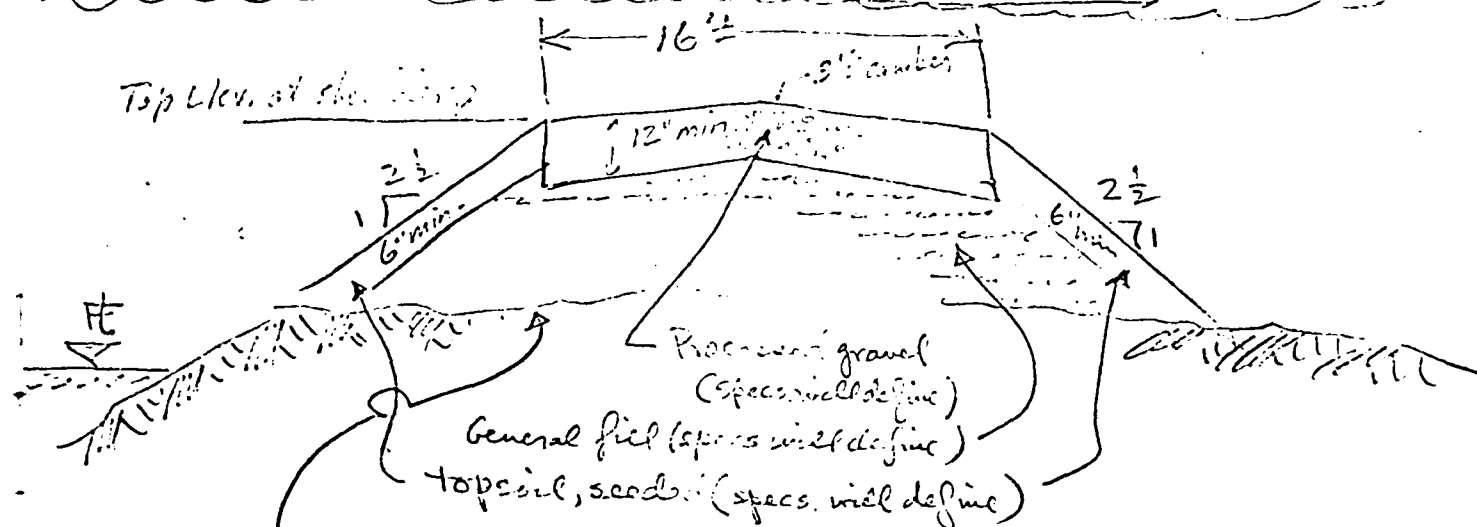 16'±
3" camber
Top Elev. at shoulders
12" min.
2 1/2
1
6" min.
2 1/2
6" min
1
Processed gravel
(specs. will define)
General fill (specs will define)
topsoil, seeded (specs. will define)